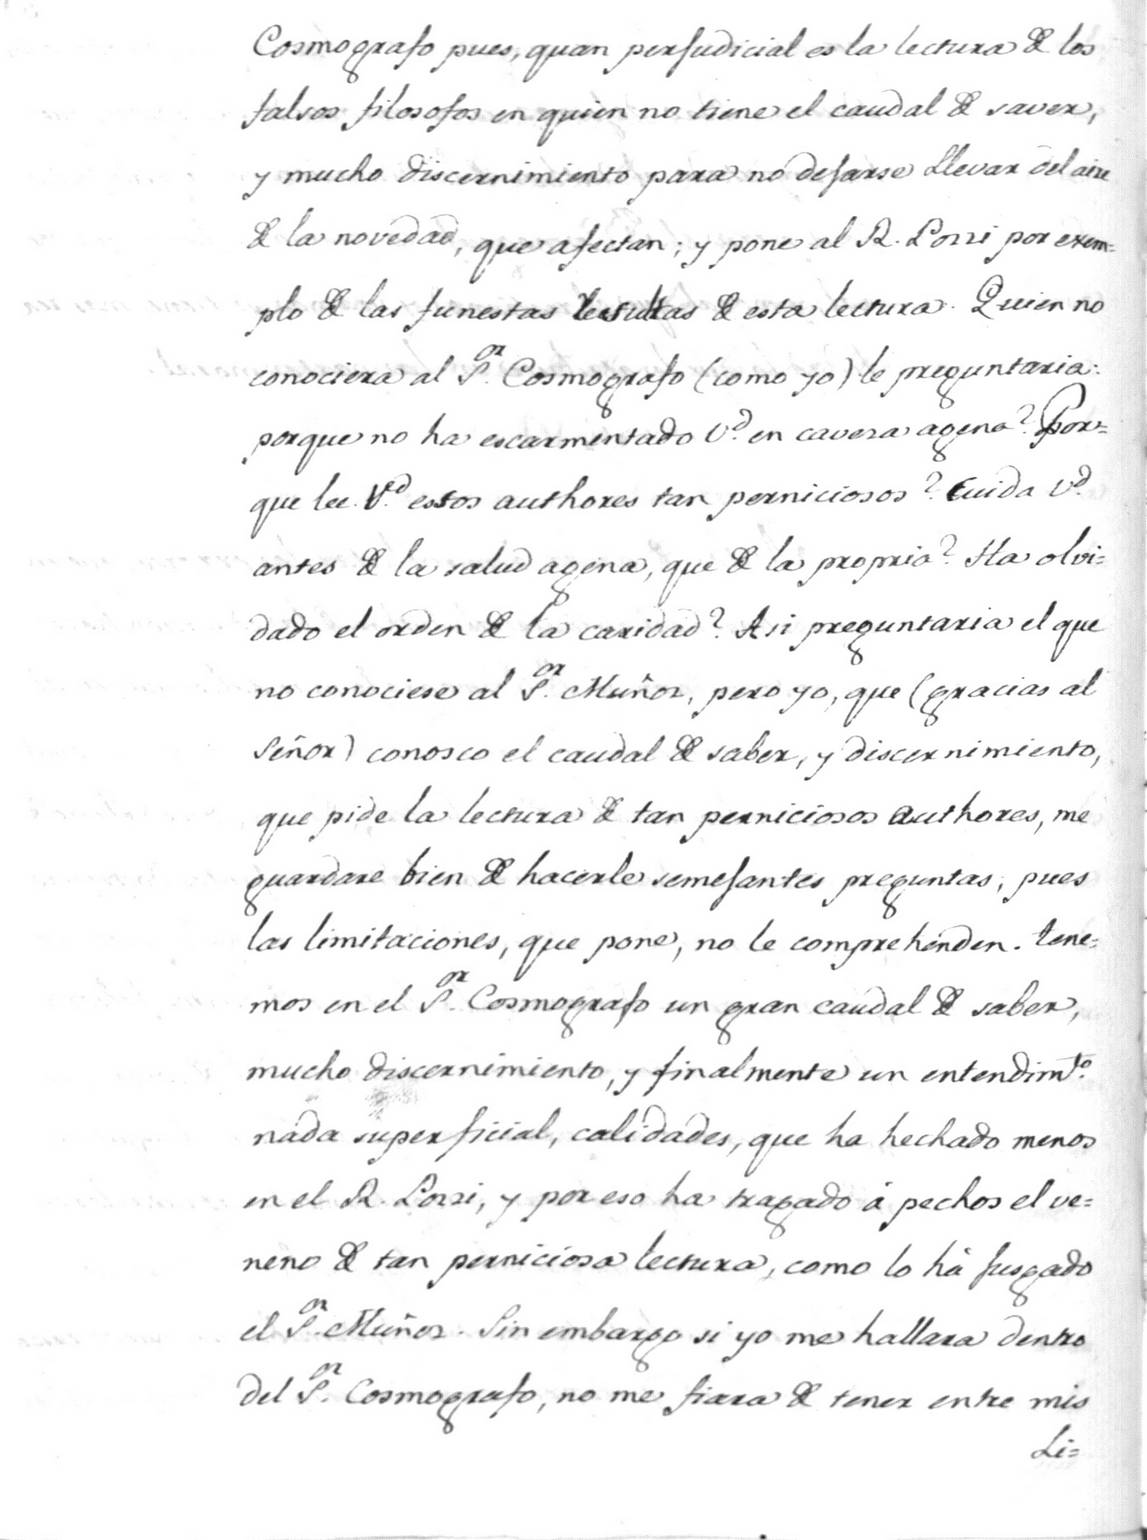 Cosmografo pues, quan perjudicial es la lectura de los
falsos filosofos en quien no tiene el caudal de saver,
y mucho discernimiento para no dejarse llevar del aire
de la novedad, que afectan; y pone al R. Pozzi por exem=
plo de las funestas resultas de esta lectura. Quien no
conociera al S.or Cosmografo (como yo) le preguntaria:
porque no ha escarmentado V.d en caveza agena? Por=
que lee V.d estos authores tan perniciosos? Cuida V.d
antes de la salud agena, que de la propria? Ha olvi=
dado el orden de la caridad? Asi preguntaria el que
no conociese al S.or Muñoz, pero yo, que (gracias al
Señor) conosco el caudal de saber, y discernimiento,
que pide la lectura de tan perniciosos authores, me
guardare bien de hacerle semejantes preguntas, pues
las limitaciones, que pone, no le comprehenden. tene=
mos en el S.or Cosmografo un gran caudal de saber,
mucho discernimiento, y finalmente un entendim.to
nada superficial, calidades, que ha hechado menos
en el R. Pozzi, y por eso ha tragado á pechos el ve=
neno de tan perniciosa lectura, como lo há jusgado
el S.or Muñoz. Sin embargo si yo me hallara dentro
del S.or Cosmografo, no me fiara de tener entre mis
Li=